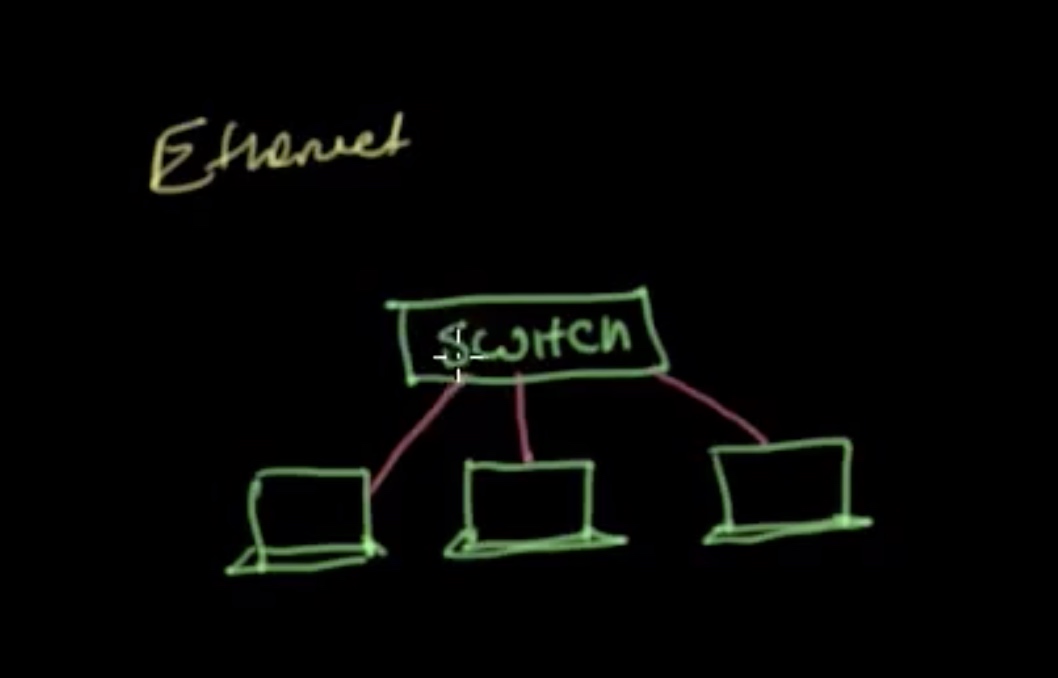 Ethernet
Switch